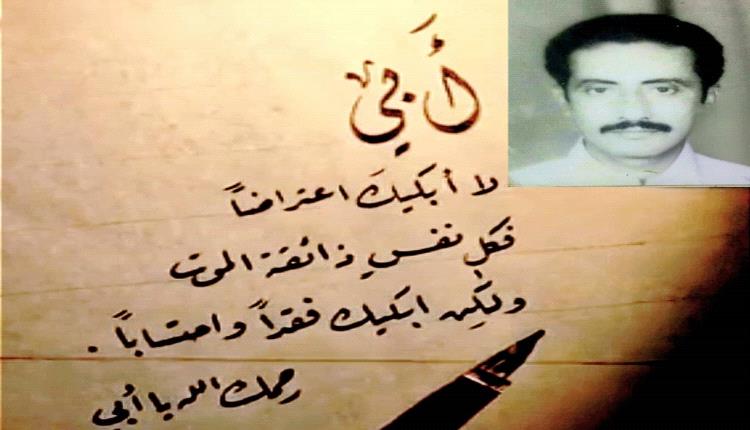 أَبي
لا أبكيكَ اعتراضاً
فكل نفسٍ ذائقة الموت
ولكن ابكيك فقداً واحتساباً .
رحمك الله يا أبي